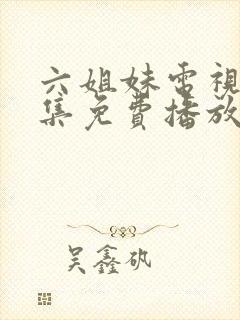 六姐妹電視
集免費播放
吳鑫矾